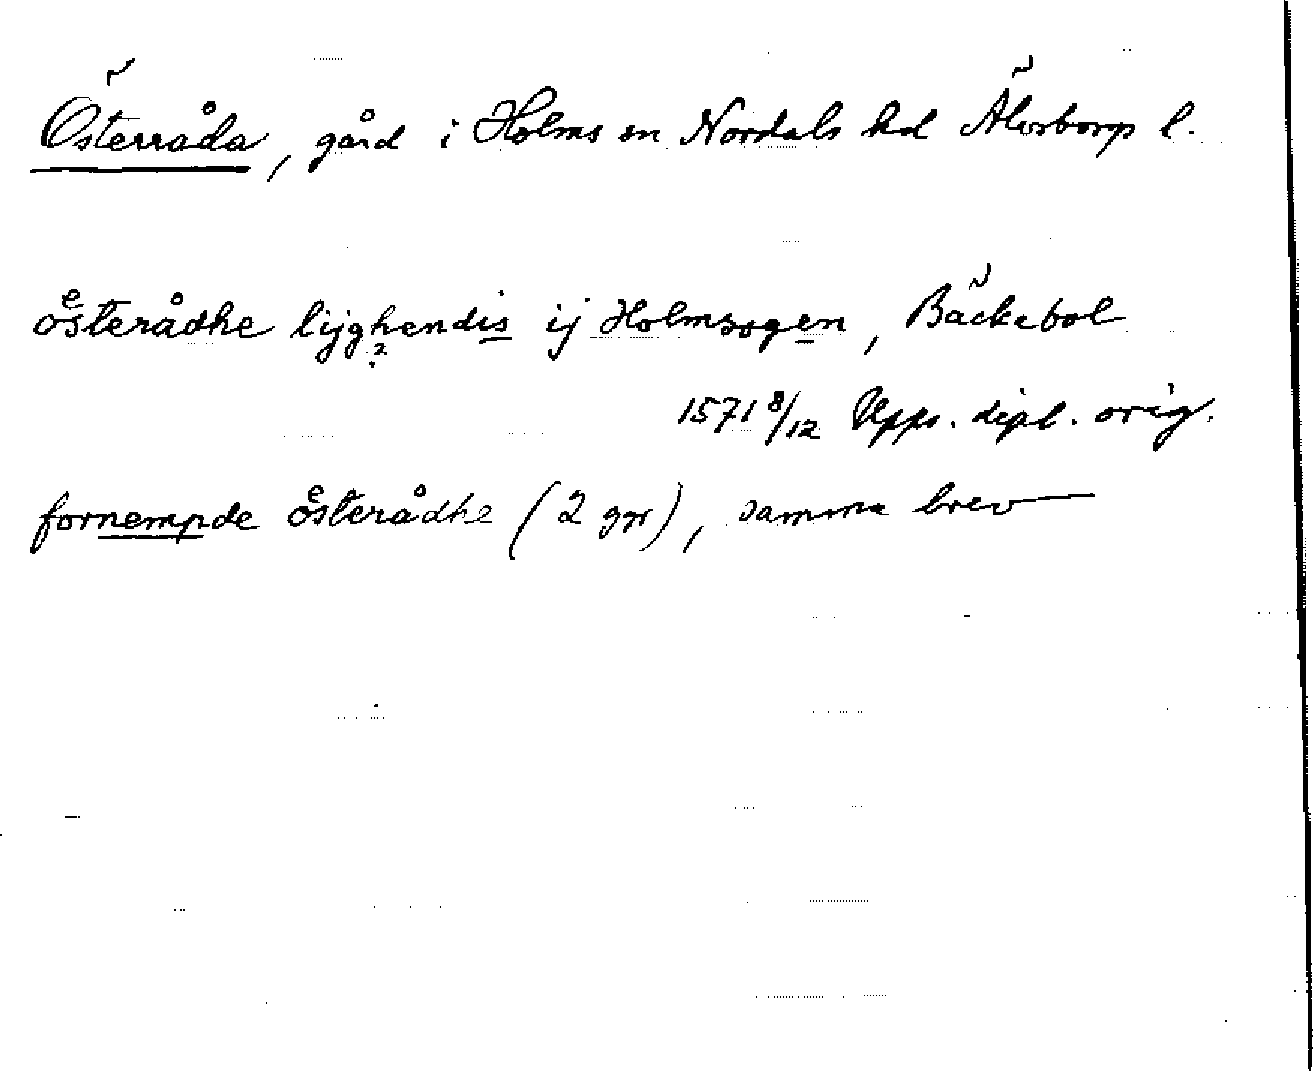 Österråda, gård i Holms sn Nordals hd Älvsborgs l.
oͤsterådhe lijghendis ij Holmsogen, Bäckebol
?
1571 8/12 Upps. dipl. orig.
fornempde oͤsterådhe (2 ggr), samma brev